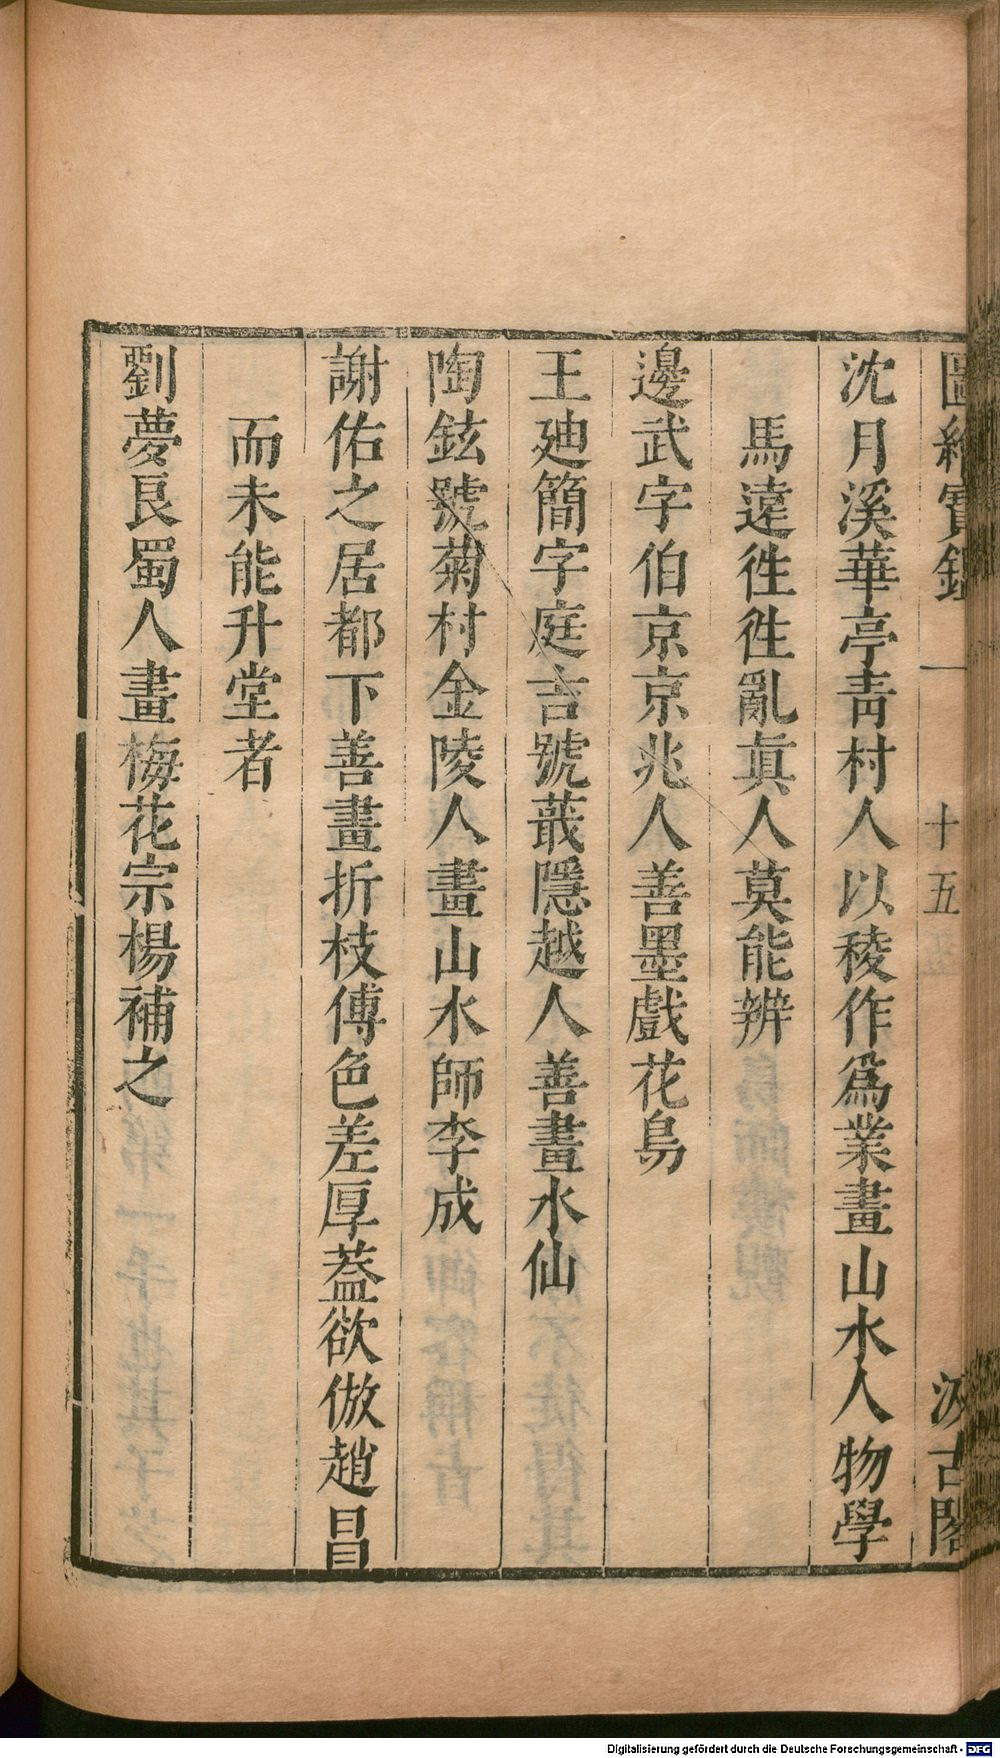 圖繪寶鑑 一 十五 汲古閣
沈月溪華亭靑村人以稜作爲業畫山水人物學
馬遠徃徃亂眞人莫能辨
邊武字伯京京兆人善墨戲花鳥
王廸簡字庭吉號蕺隱越人善畫水仙
陶鉉號菊村金陵人畫山水師李成
謝佑之居都下善畫折枝傅色差厚蓋欲倣趙昌
而未能升堂者
劉夢良蜀人畫梅花宗楊補之
Digitalisierung gefördert durch die Deutsche Forschungsgemeinschaft - DFG